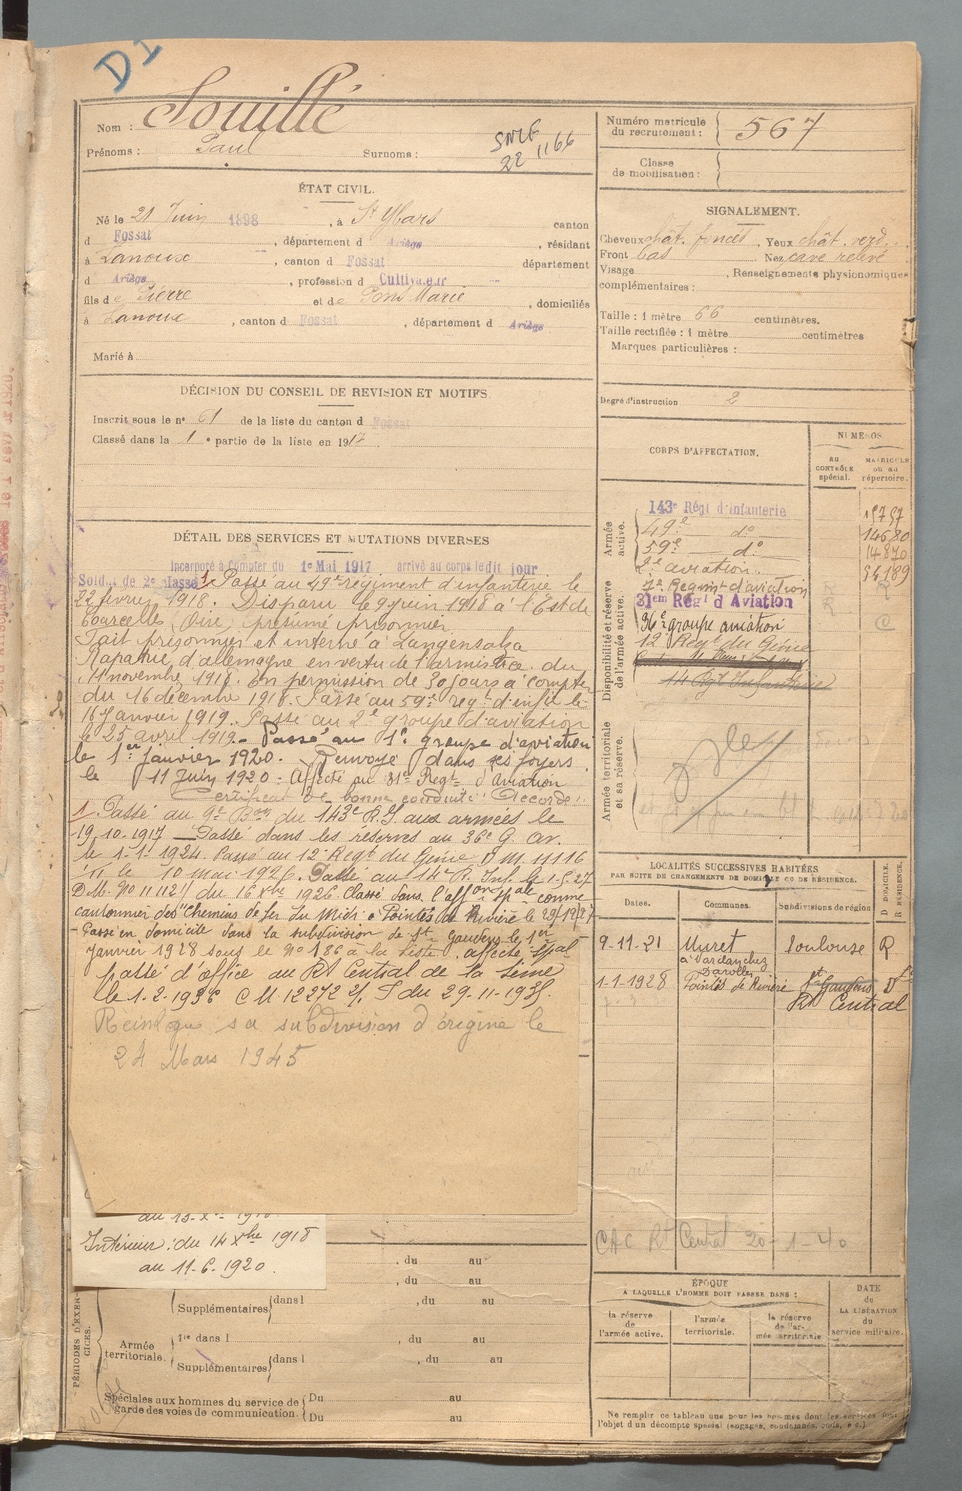 D1
Nom : Souillé
Prénoms : Paul Surnoms :
SNCF
22 1166
Numéro matricule
du recrutement : 567
Classe
de mobilisation :
ÉTAT CIVIL.
Né le 21 Juin 1898, à St Ybars canton
d Fossat, département d Ariège, résidant
à Lanoux, canton d Fossat département
d Ariège, profession d Cultivateur
fils de Pierre et de Pons Marie, domiciliés
à Lanoux, canton d Fossat, département d Ariège
Marié à
SIGNALEMENT.
Cheveux chât. foncés, Yeux chât. verd.
Front bas Nez cave relevé
Visage, Renseignements physionomiques
complémentaires :
Taille : 1 mètre 66 centimètres.
Taille rectifiée : 1 mètre centimètres
Marques particulières :
Degré d'instruction 2
DÉCISION DU CONSEIL DE REVISION ET MOTIFS
Inscrit sous le n° 61 de la liste du canton d Fossat
Classé dans la 1e partie de la liste en 1917.
DÉTAIL DES SERVICES ET MUTATIONS DIVERSES
Incorporé à compter du 1e Mai 1917 arrivé au corps le dit jour
Soldat de 2e classe 1 Passé au 49e régiment d'infanterie le
22 février 1918. Disparu le 9 juin 1918 à l'Est de
(Oise) présumé prisonnier
Fait prisonnier et interné à Langensalza
Rapatrié d'allemagne en vertu de l'armistice du
11 novembre 1918. En permission de 30 jours à compter
du 16 décembre 1918. Passé au 59e régt d'inf le
16 Janvier 1919. Passé au 2e groupe d'aviation
le 25 avril 1919. Passé au 1er groupe d'aviation
le 1er Janvier 1920. Renvoyé dans ses foyers
le 11 Juin 1920. Affecté au 31e Régt d'Aviation
Certificat de bonne conduite "Accordé"
1 Passé au 9e Bon du 143e R.I. aux armées le
19.10.1917 Passé dans les réserves au 36e G. av.
le 1-1-1924. Passé au 12e Régt du Génie D.M. 11116
le 10 mai 1926. Passé au 14e R. Inf. le 1.5.27
D.M. No 11112 du 16 Xbre 1926 Classé dans l'affon spale comme
cantonnier des "Chemins de fer du Midi" à Pointis de Rivière le 29/12/27
- Passé en domicile dans la subdivision de St Gaudens le 1er
janvier 1928 sous le no 186 à la liste affecté spal
passé d'office au Rt Central de la Seine
le 1-2-1936 C M 12272 du 29-11-1935.
Réintègre sa subdivision d'origine le
24 Mars 1945
Intérieur : du 14 Xbre 1918
au 11-6-1920.
CORPS D'AFFECTATION.
NUMÉROS
AU CONTRÔLE spécial.
MATRICULE ou au répertoire.
Armée active.
143e Régt d'Infanterie
49e do
59e do 14870
2e aviation 54189
1er Régiment d'aviation
Disponibilité et réserve de l'armée active.
31em Régt d'Aviation
36e groupe aviation
12e Régt du Génie
14 Rgt Infanterie
Armée territoriale et sa réserve.
LOCALITÉS SUCCESSIVES HABITÉES
PAR SUITE DE CHANGEMENTS DE DOMICILE OU DE RÉSIDENCE.
Dates. Communes. Subdivisions de région D DOMICILE. R RÉSIDENCE.
9-11-21 Muret Toulouse R
1-1-1928 Pointis de Rivière St Gaudens D
Rt Central
CAC Rt Central 20-1-40
PÉRIODES D'EXERCICES.
, du au
, du au
Supplémentaires dans l , du au
Armée territoriale.
1re dans l , du au
Supplémentaires dans l , du au
Spéciales aux hommes du service de
garde des voies de communication.
Du au
Du au
ÉPOQUE
A LAQUELLE L'HOMME DOIT PASSER DANS :
la réserve de l'armée active.
l'armée territoriale.
la réserve de l'armée territoriale
DATE
de
LA LIBÉRATION
du
service militaire.
Ne remplir ce tableau que pour les hommes dont les services font
l'objet d'un décompte spécial (engagés, condamnés, omis, etc.).